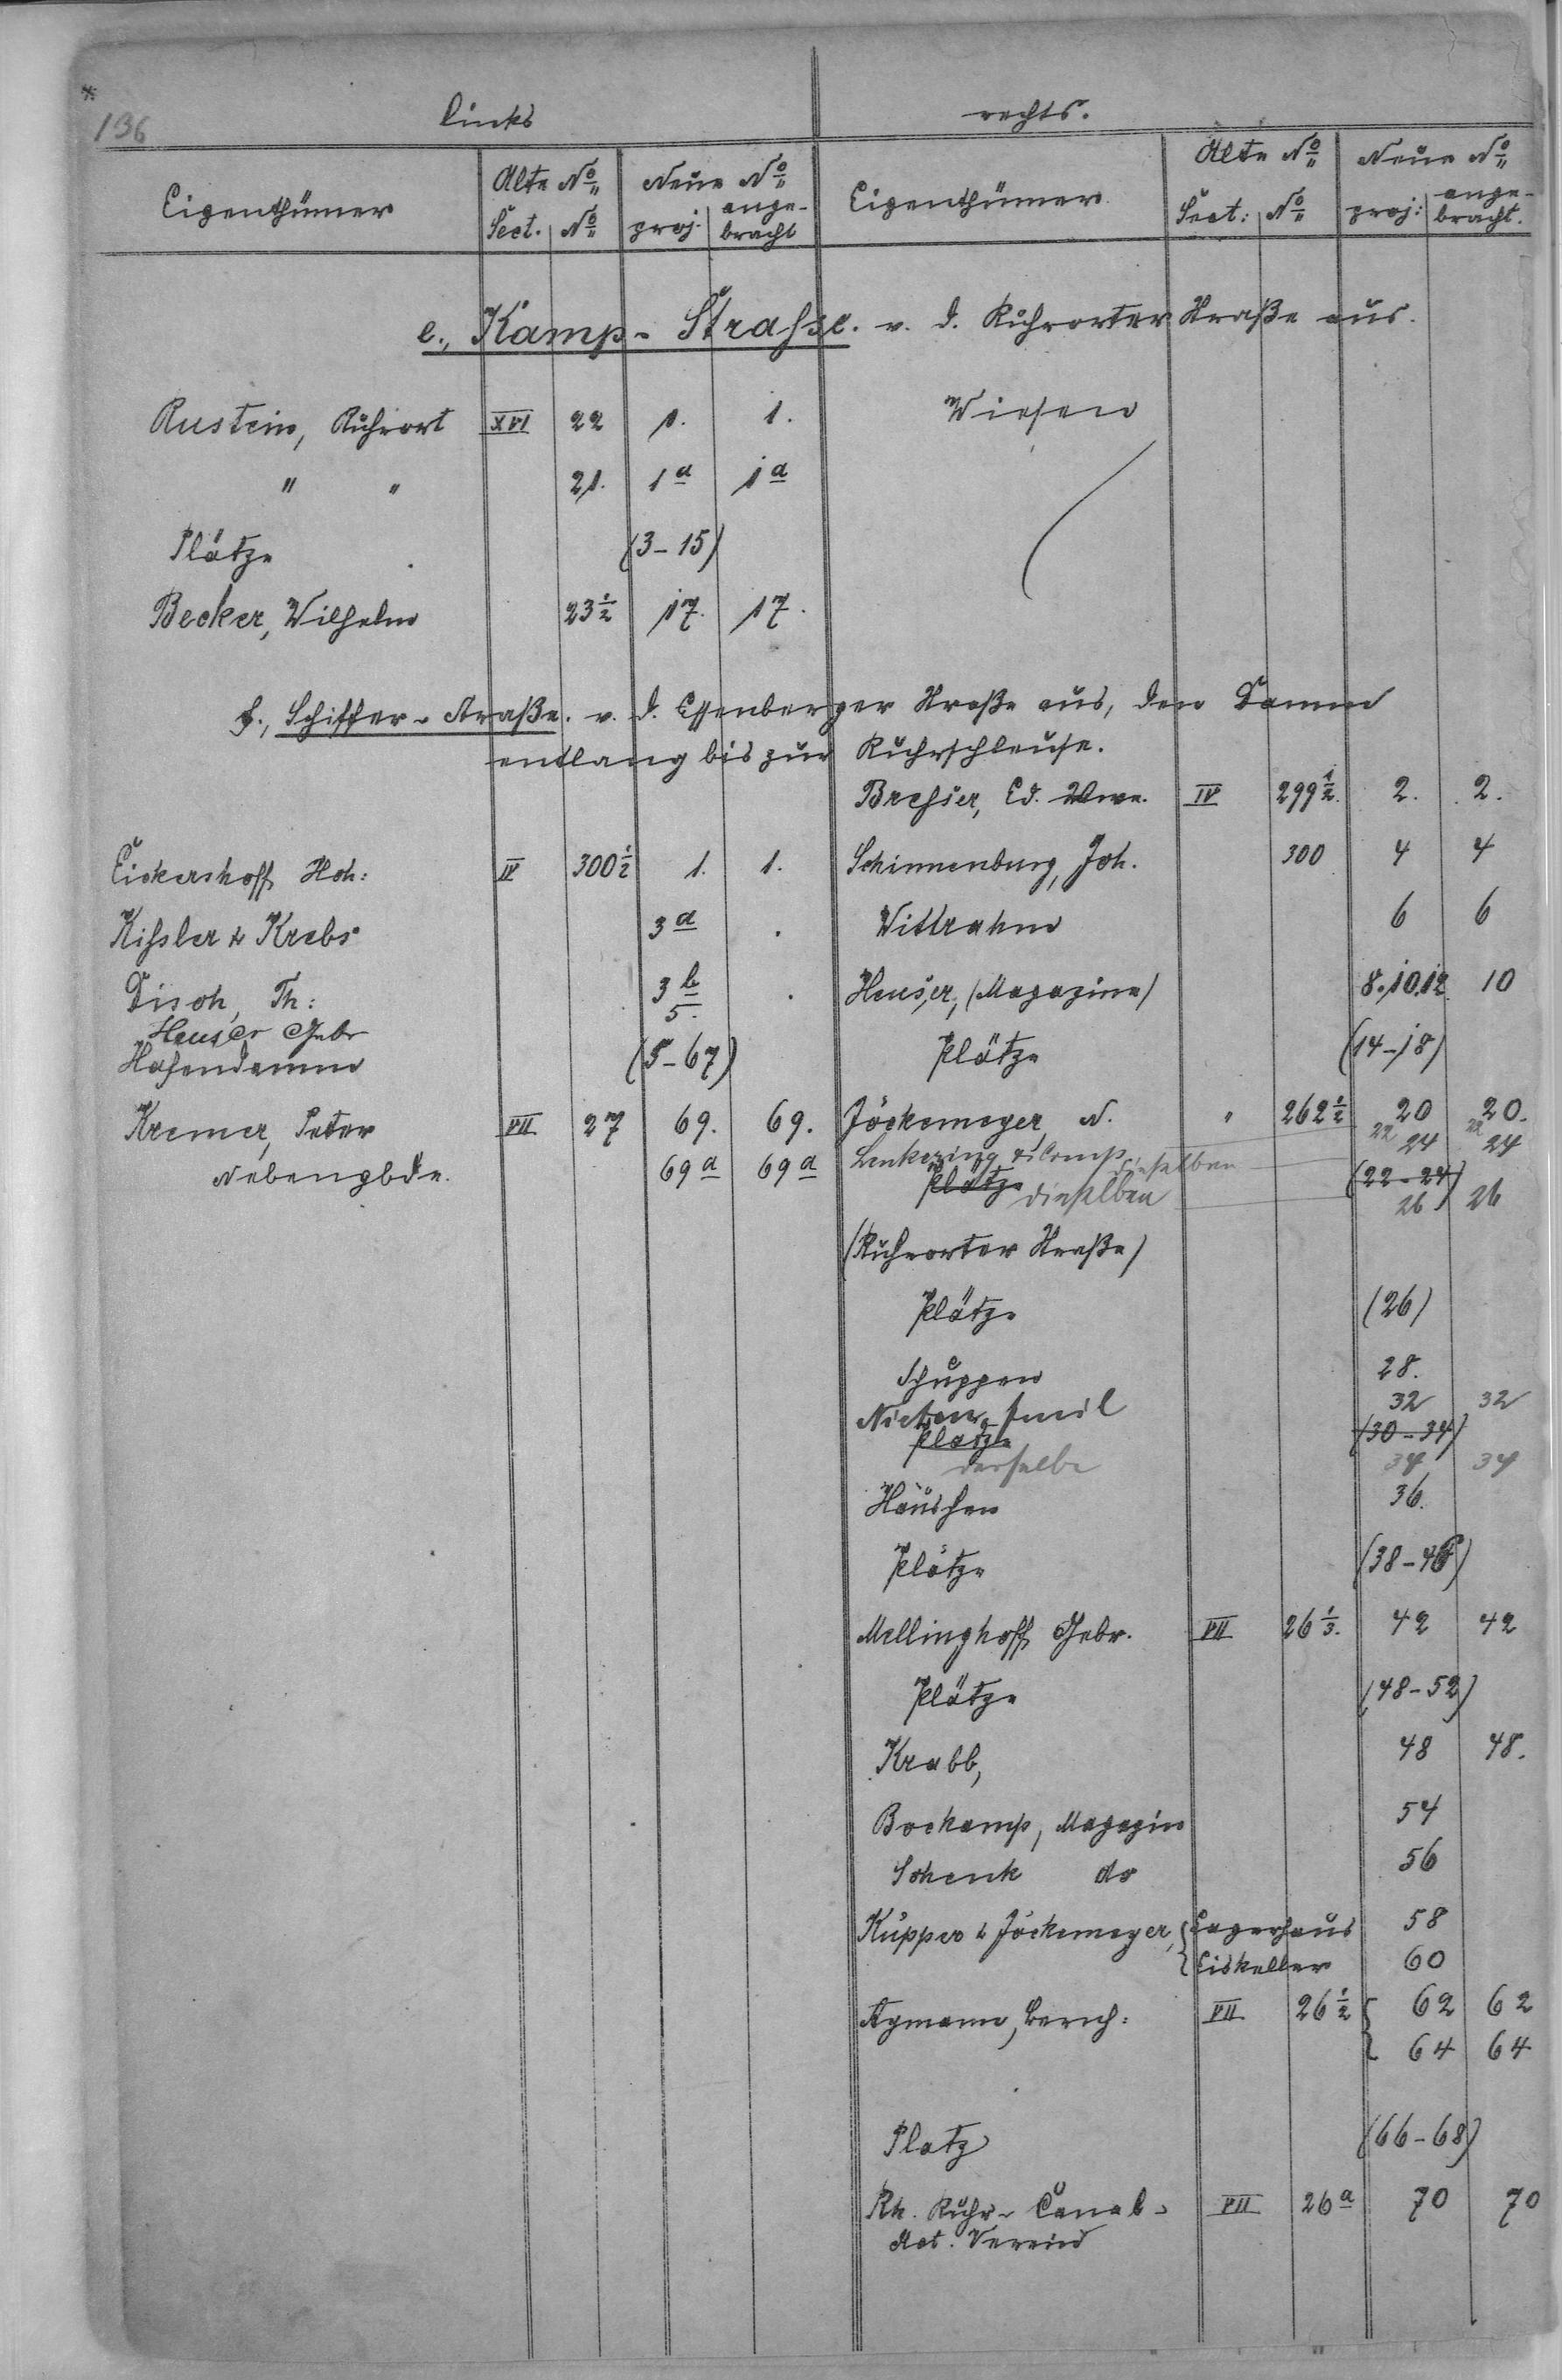 136
links
rechts.
Eigenthümer | Alte No | Neue No | Eigenthümer | Alte No | Neue No
Sect. | No | proj. | ange-bracht | Sect: | No | proj: | ange-bracht.
e., Kamp-Strasse. v. d. Ruhrorter Straße aus.
Rustein, Ruhrort | XVI | 22 | 1. | 1. | Wiesen
" " | 21. | 1a | 1a
Plätze | (3-15)
Becker, Wilhelm | 23½ | 17. | 17.
f., Schiffer-Straße. v. d. Essenberger Straße aus, den Damm
entlang bis zur Ruhrschleuse.
Bresser, Ed. Wwe. | IV | 299½. | 2. | 2.
Eickershoff Hch: | IV | 300½ | 1. | 1. | Schinnenburg, Joh. | 300 | 4 | 4
Kissler & Krebs | 3a | . | Wittrahm | 6 | 6
Disch, Th: | 3b | . | Heuser, (Magazine) | 8.10.12 | 10
Heuser Gebr | 5.
Hafendamm | (5-67) | Plätze | (14-18)
Kremer, Peter | VII | 27 | 69. | 69. | Jöckemeyer, N. | " | 262½ | 20 | 20.
Lenkering & Comp. | 22 | 22
Nebengbde. | 69a | 69a | Plätze dieselben | (22-24) | 24 | 24
dieselben | 26 | 26
(Ruhrorter Straße)
Plätze | (26)
Schuppen | 28.
Nieten, Emil | 32 | 32
Plätze | (30-34)
derselbe | 34 | 34
Häuschen | 36.
Plätze | (38-46)
Mellinghoff Gebr. | VII | 26⅓. | 42 | 42
Plätze | (48-52)
Krabb, | 48 | 48.
Bockamp, Magazin | 54
Schenk do | 56
Küpper & Jöckemeyer, { Lagerhaus | 58
{ Eiskeller | 60
Agmann, Bernh: | VII | 26½ | { 62 | 62
{ 64 | 64
Platz | (66-68)
Rh. Ruhr-Canal- | VII | 26a | 70 | 70
Act. Verein